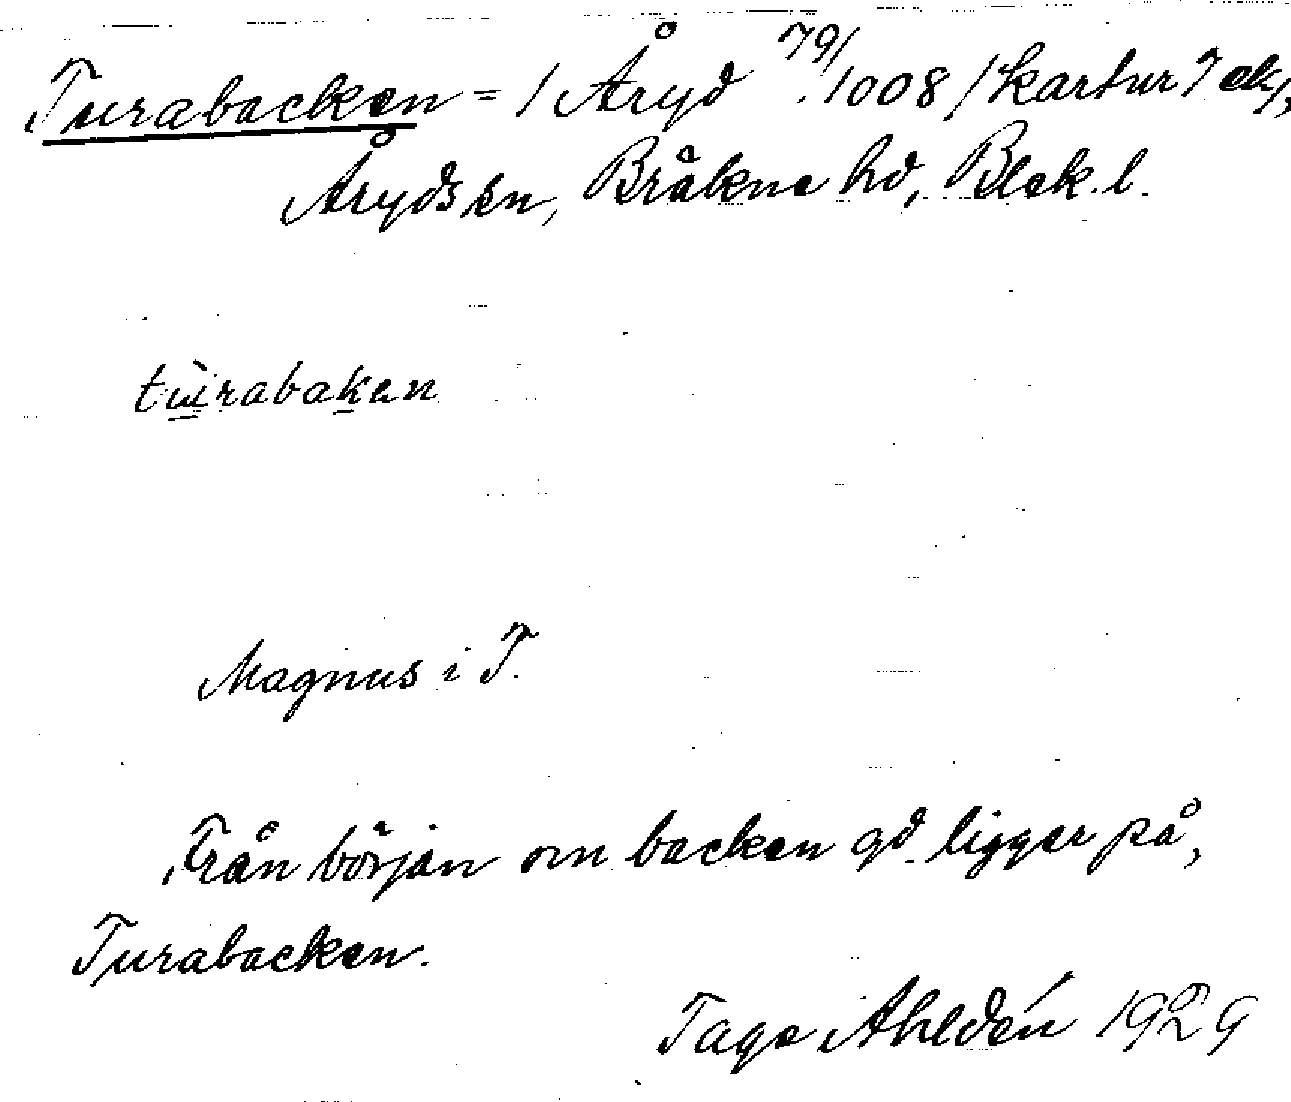 Turabacken = 1 Åryd 79/1008 /kartur 7 ek/,
Åryds sn, Bräkne hd, Blek. l.
tùrabakan
Magnus i T.
Från början om backen gd. ligger på,
Turabacken.
Tage Ahldén 1929